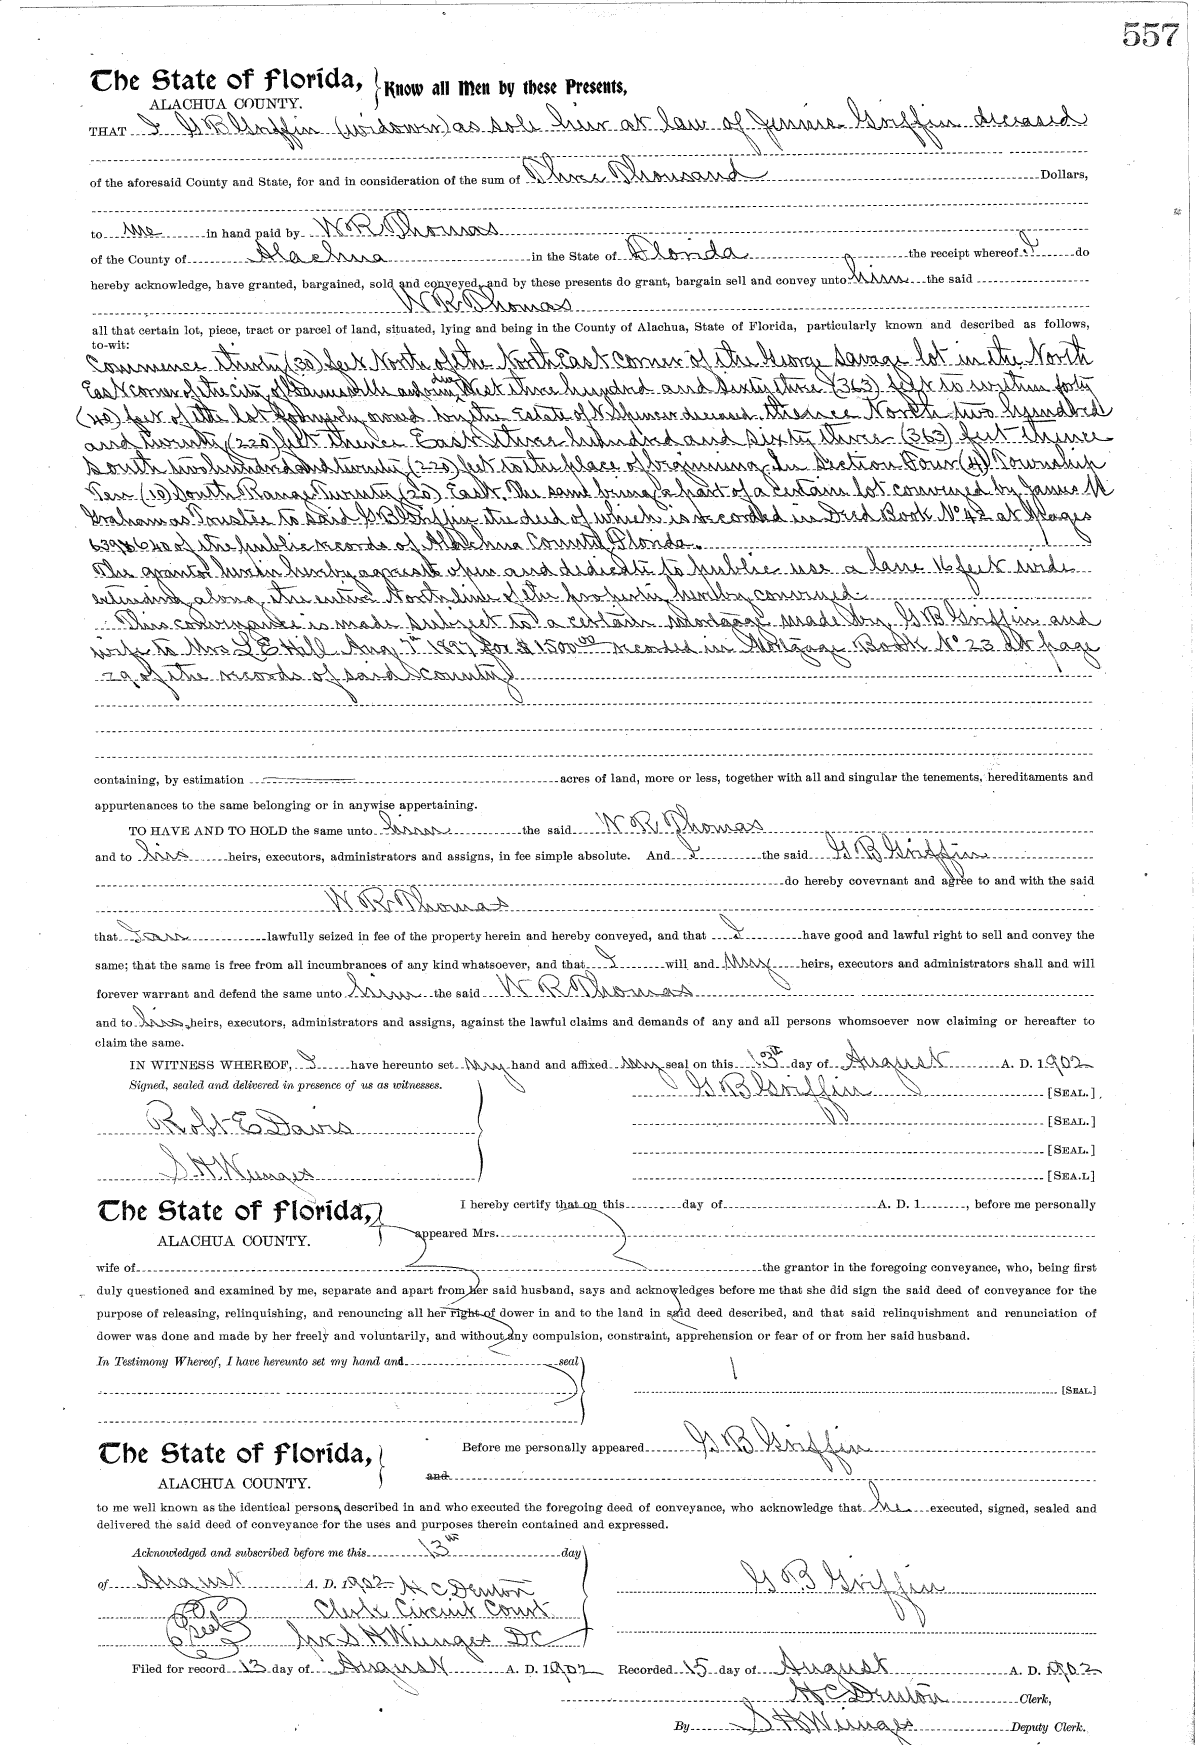 557
The State of Florida, Know all Men by these Presents,
ALACHUA COUNTY.
THAT I G B Griffin (widower) as sole heir at law of Jennie Griffin deceased
of the aforesaid County and State, for and in consideration of the sum of Three Thousand Dollars,
to me in hand paid by W R Thomas
of the County of Alachua in the State of Florida the receipt whereof I do
hereby acknowledge, have granted, bargained, sold and conveyed, and by these presents do grant, bargain sell and convey unto him the said
W R Thomas
all that certain lot, piece, tract or parcel of land, situated, lying and being in the County of Alachua, State of Florida, particularly known and described as follows,
to-wit:
Commence thirty (30) feet North of the North East corner of the George Savage lot in the North
East corner of the city of Gainesville and run due West three hundred and sixty three (363) feet to within forty
(40) feet of the lot formerly owned by the Estate of deceased thence North two hundred
and twenty (220) feet thence East three hundred and sixty three (363) feet thence
South two hundred and twenty (220) feet to the place of beginning. In Section Four (4) Township
Ten (10) South Range Twenty (20) East. The same being a part of a certain lot conveyed by James M
Graham as Trustee to said G B Griffin the deed of which is recorded in Deed Book No 42 at Pages
639 & 640 of the public records of Alachua County Florida.
The grantor herein hereby agrees to open and dedicate to public use a lane 16 feet wide
extending along the entire North line of the property hereby conveyed
This conveyance is made subject to a certain Mortgage made by G B Griffin and
wife to Mrs L E Hill Aug 7th 1897 for $1500.00 recorded in Mortgage Book No 23 at page
29 of the records of said county
containing, by estimation acres of land, more or less, together with all and singular the tenements, hereditaments and
appurtenances to the same belonging or in anywise appertaining.
TO HAVE AND TO HOLD the same unto him the said W R Thomas
and to his heirs, executors, administrators and assigns, in fee simple absolute. And I the said G B Griffin
do hereby covevnant and agree to and with the said
W R Thomas
that I am lawfully seized in fee of the property herein and hereby conveyed, and that I have good and lawful right to sell and convey the
same; that the same is free from all incumbrances of any kind whatsoever, and that I will and my heirs, executors and administrators shall and will
forever warrant and defend the same unto him the said W R Thomas
and to his heirs, executors, administrators and assigns, against the lawful claims and demands of any and all persons whomsoever now claiming or hereafter to
claim the same.
IN WITNESS WHEREOF, I have hereunto set my hand and affixed my seal on this 13th day of August A. D. 1902
Signed, sealed and delivered in presence of us as witnesses.
G B Griffin [SEAL.]
Robt E Davis [SEAL.]
[SEAL.]
S H Wienges [SEAL]
The State of Florida, I hereby certify that on this day of A. D. 1 , before me personally
ALACHUA COUNTY. appeared Mrs.
wife of the grantor in the foregoing conveyance, who, being first
duly questioned and examined by me, separate and apart from her said husband, says and acknowledges before me that she did sign the said deed of conveyance for the
purpose of releasing, relinquishing, and renouncing all her right of dower in and to the land in said deed described, and that said relinquishment and renunciation of
dower was done and made by her freely and voluntarily, and without any compulsion, constraint, apprehension or fear of or from her said husband.
In Testimony Whereof, I have hereunto set my hand and seal
[SEAL.]
The State of Florida, Before me personally appeared G B Griffin
ALACHUA COUNTY. and
to me well known as the identical persons described in and who executed the foregoing deed of conveyance, who acknowledge that he executed, signed, sealed and
delivered the said deed of conveyance for the uses and purposes therein contained and expressed.
Acknowledged and subscribed before me this 13th day
of August A. D. 1902 H C Denton G B Griffin
Clerk Circuit Court
Seal per S H Wienges DC
Filed for record 13 day of August A. D. 1902 Recorded 15 day of August A. D. 1902
H C Denton Clerk,
By S H Wienges Deputy Clerk.